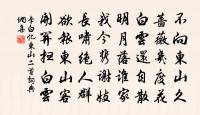 不向東山久
薔薇幾度花
白雲還自散
明月落誰家
我今攜謝妓
長嘯絕人群
欲報東山客
開關掃白雲
李白憶東山二首詞典
網集